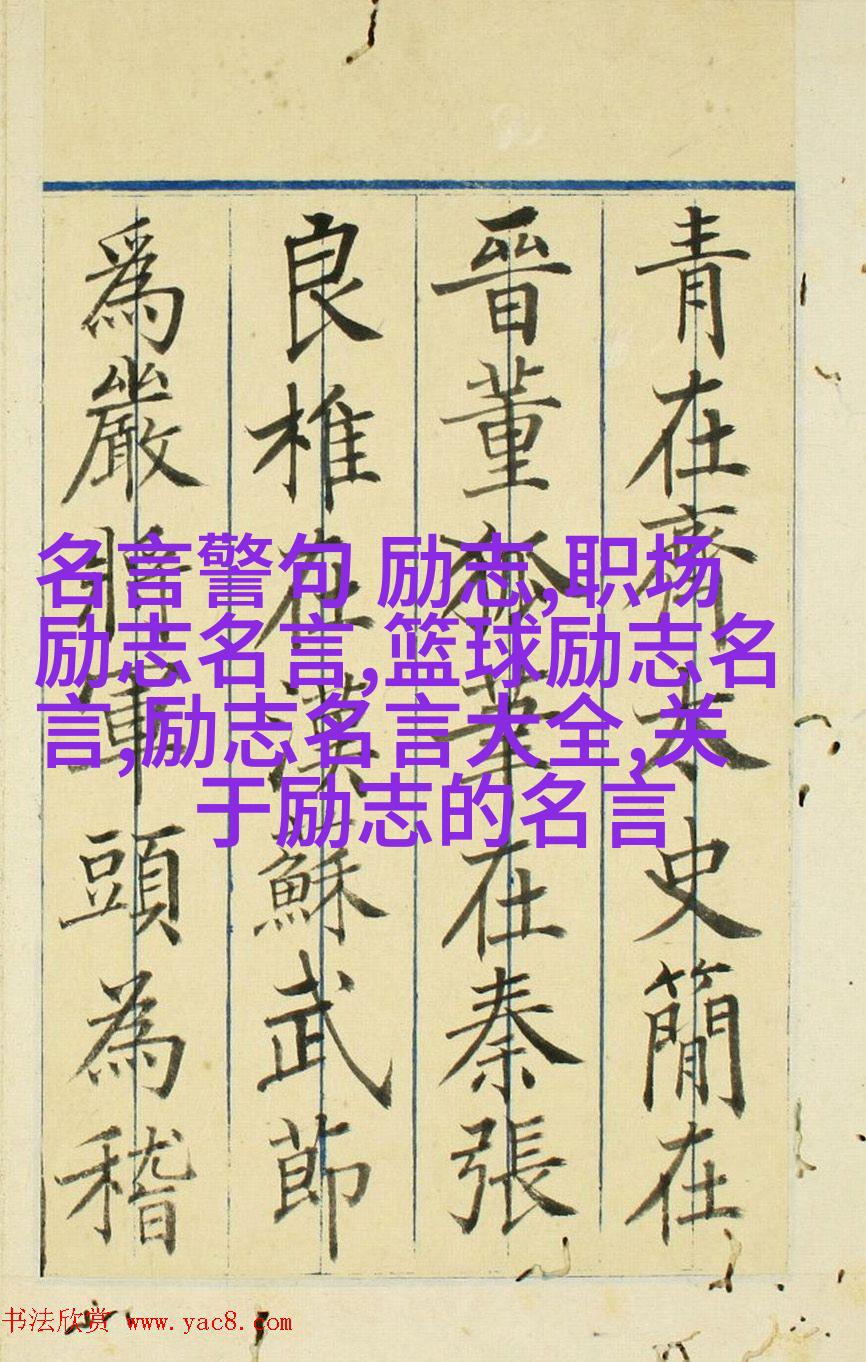 青在齊太史簡在
晉董狐筆在秦張
良椎在漢蘇武節
爲嚴將軍頭為稽
名言警句 励志,职场
励志名言,篮球励志名
言,励志名言大全,关
于励志的名言
书法欣赏 www.yac8.com